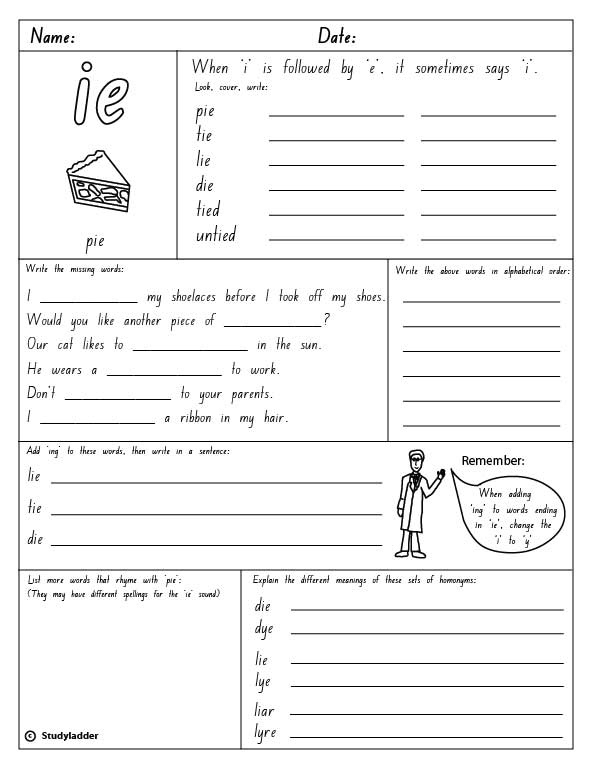 Name: Date:
ie
pie
When 'i' is followed by 'e', it sometimes says 'i'.
Look, cover, write:
pie
tie
lie
die
tied
untied
Write the missing words:
I ____________ my shoelaces before I took off my shoes.
Would you like another piece of ____________?
Our cat likes to ______________ in the sun.
He wears a ______________ to work.
Don't _____________ to your parents.
I ______________ a ribbon in my hair.
Write the above words in alphabetical order:
Add 'ing' to these words, then write in a sentence:
lie
tie
die
Remember:
When adding
'ing' to words ending
in 'ie', change the
'i' to 'y'
List more words that rhyme with 'pie':
(They may have different spellings for the 'ie' sound)
© Studyladder
Explain the different meanings of these sets of homonyms:
die
dye
lie
lye
liar
lyre